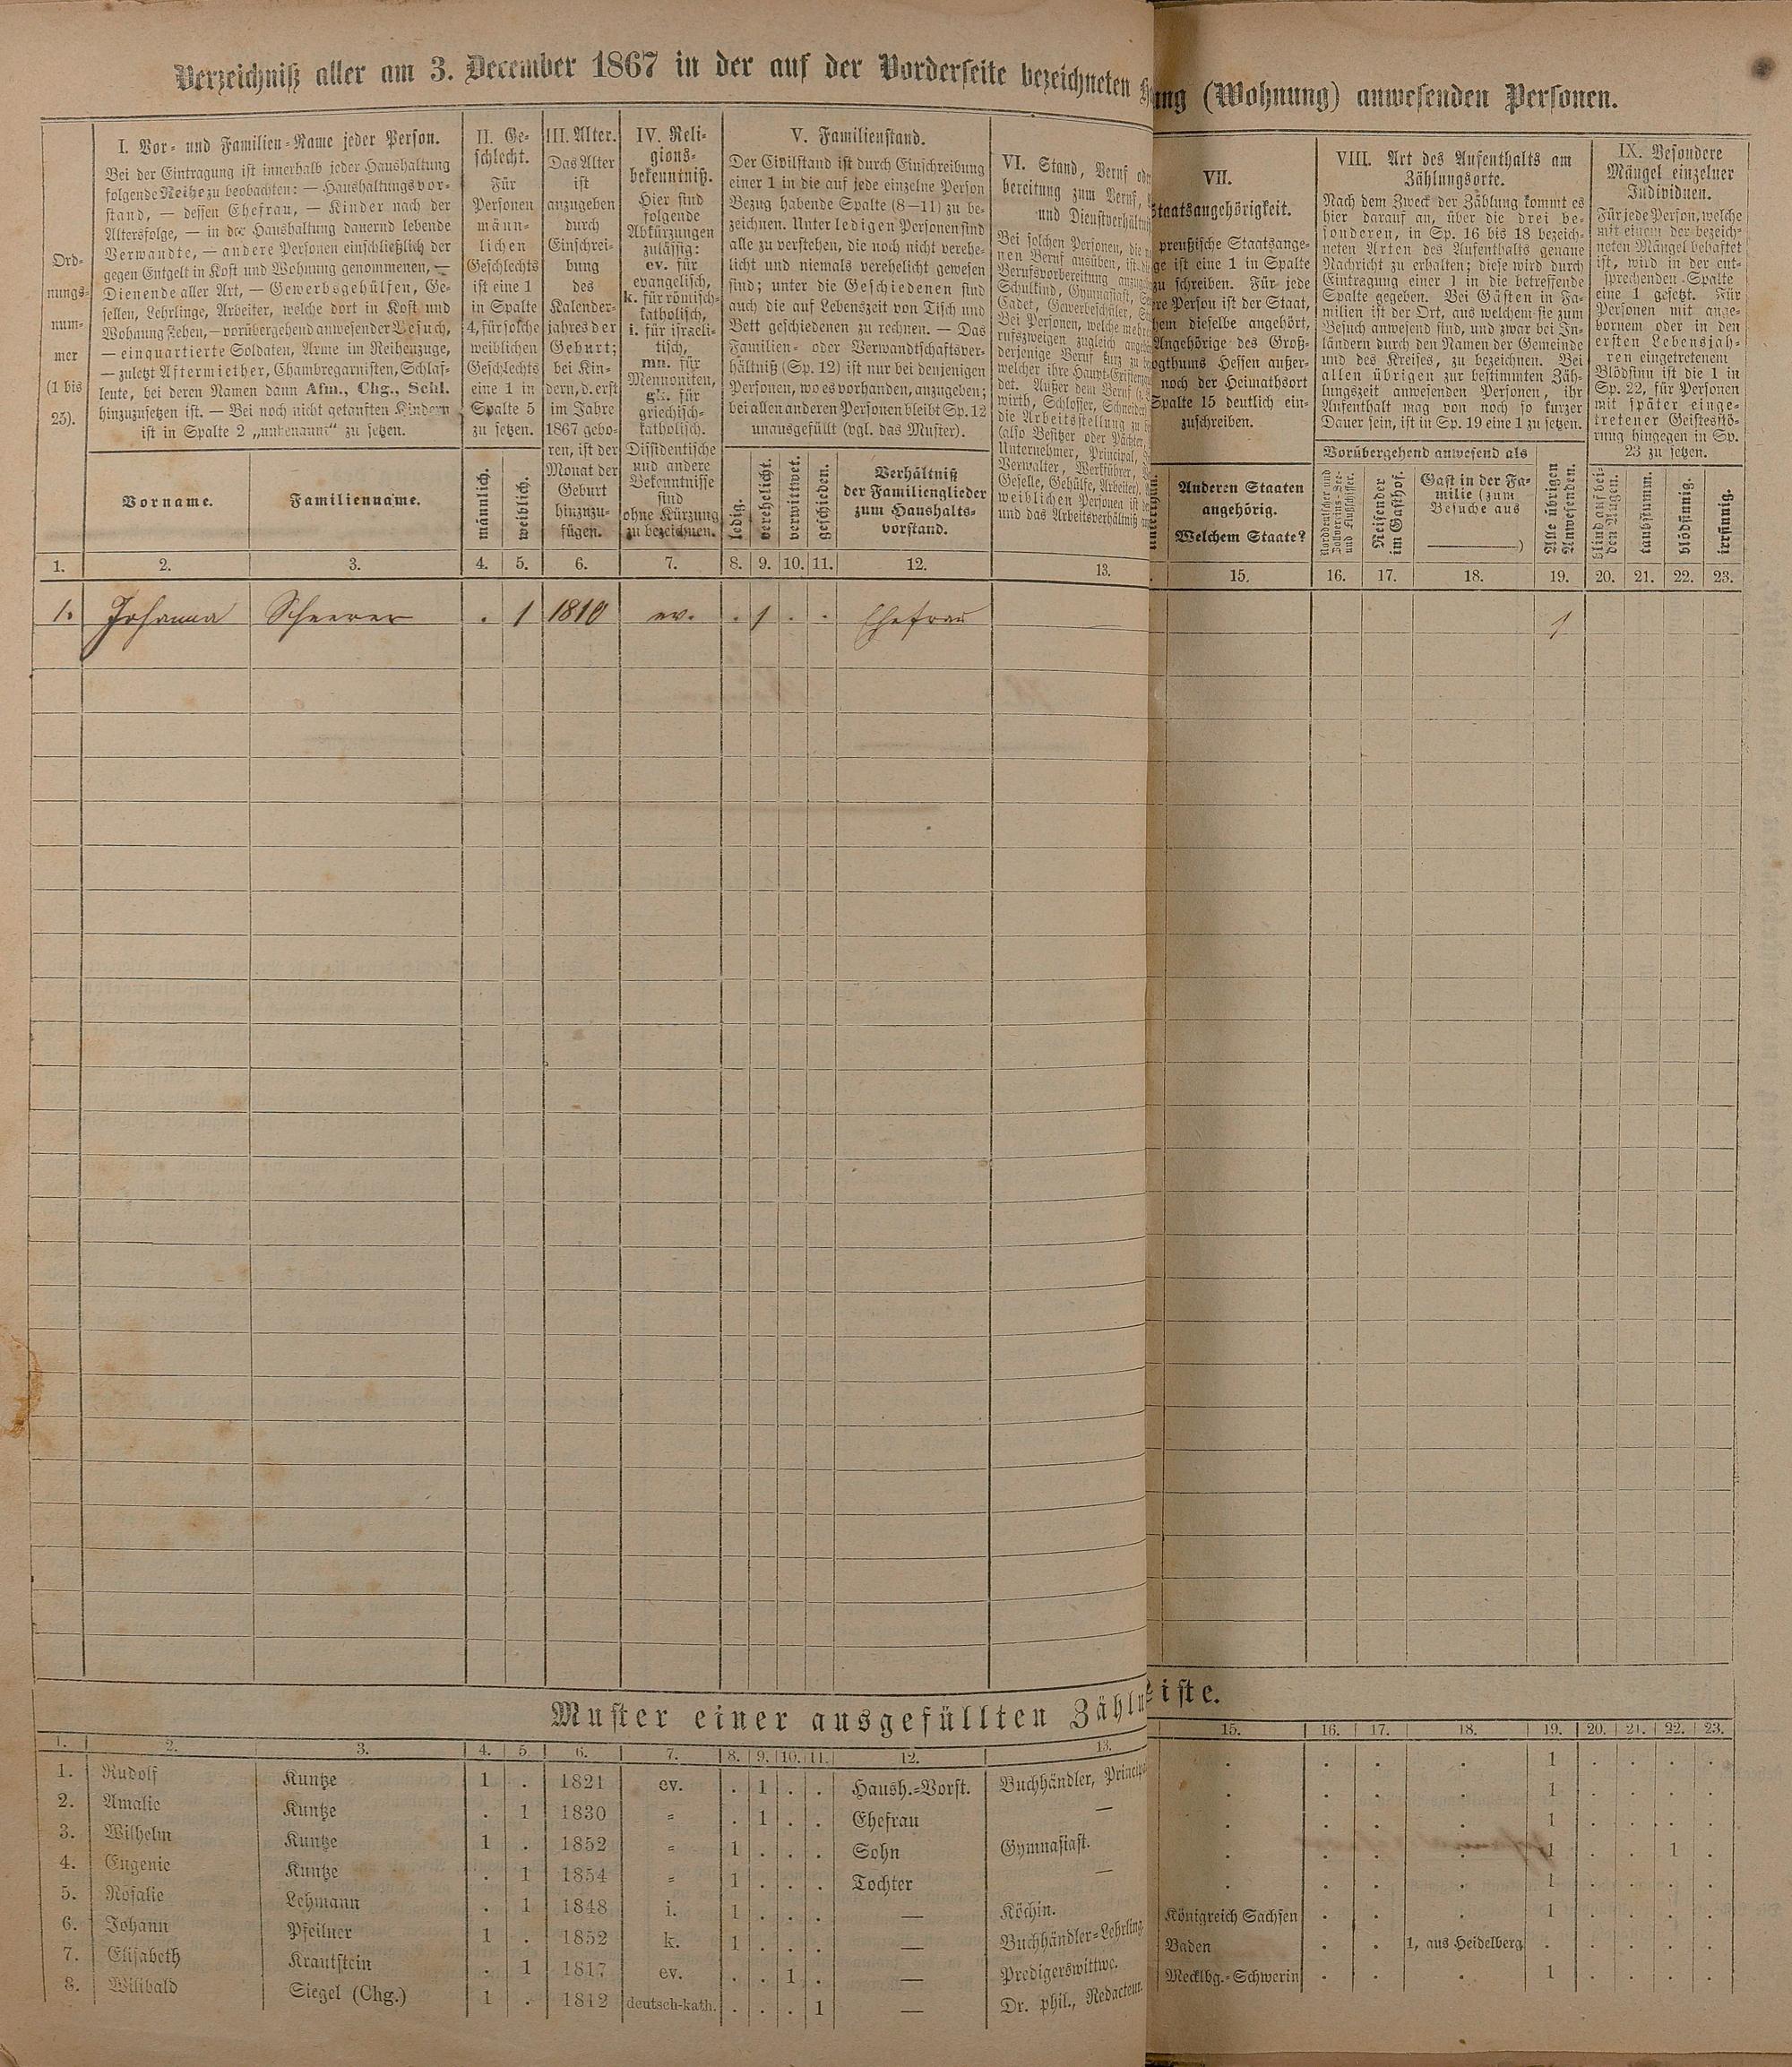 Verzeichniß aller am 3. December 1867 in der auf der Vorderseite bezeichneten
ung (Wohnung) anwesenden Personen.
Ord-
nungs-
num-
mer
(1 bis
25).
I. Vor- und Familien-Name jeder Person.
Bei der Eintragung ist innerhalb jeder Haushaltung
folgende Reihe zu beobachten: — Haushaltungsvor-
stand, — dessen Ehefrau, — Kinder nach der
Altersfolge, — in der Haushaltung dauernd lebende
Verwandte, — andere Personen einschließlich der
gegen Entgelt in Kost und Wohnung genommenen, —
Dienende aller Art, — Gewerbsgehülfen, Ge-
sellen, Lehrlinge, Arbeiter, welche dort in Kost und
Wohnung stehen, — vorübergehend anwesender Besuch,
— einquartierte Soldaten, Arme im Reihenzuge,
— zuletzt Aftermiether, Chambregarnisten, Schlaf-
leute, bei deren Namen dann Afm., Chg., Schl.
hinzuzusetzen ist. — Bei noch nicht getauften Kindern
ist in Spalte 2 „unbenannt“ zu setzen.
Vorname.
Familienname.
II. Ge-
schlecht.
Für
Personen
männ-
lichen
Geschlechts
ist eine 1
in Spalte
4, für solche
weiblichen
Geschlechts
eine 1 in
Spalte 5
zu setzen.
männlich.
weiblich.
III. Alter.
Das Alter
ist
anzugeben
durch
Einschrei-
bung
des
Kalender-
jahres der
Geburt;
bei Kin-
dern, d. erst
im Jahre
1867 gebo-
ren, ist der
Monat der
Geburt
hinzuzu-
fügen.
IV. Reli-
gions-
bekenntniß.
Hier sind
folgende
Abkürzungen
zulässig:
ev. für
evangelisch,
k. für römisch-
katholisch,
i. für israeli-
tisch,
mn. für
Mennoniten,
gk. für
griechisch-
katholisch.
Dissidentische
und andere
Bekenntnisse
sind
ohne Kürzung
zu bezeichnen.
V. Familienstand.
Der Civilstand ist durch Einschreibung
einer 1 in die auf jede einzelne Person
Bezug habende Spalte (8—11) zu be-
zeichnen. Unter ledigen Personen sind
alle zu verstehen, die noch nicht verehe-
licht und niemals verehelicht gewesen
sind; unter die Geschiedenen sind
auch die auf Lebenszeit von Tisch und
Bett geschiedenen zu rechnen. — Das
Familien- oder Verwandtschaftsver-
hältniß (Sp. 12) ist nur bei denjenigen
Personen, wo es vorhanden, anzugeben;
bei allen anderen Personen bleibt Sp. 12
unausgefüllt (vgl. das Muster).
ledig.
verehelicht.
verwittwet.
geschieden.
Verhältniß
der Familienglieder
zum Haushalts-
vorstand.
VI. Stand, Beruf od
bereitung zum Beruf,
und Dienstverhältni
Bei solchen Personen, die
nen Beruf ausüben, ist
Berufsvorbereitung
Schulkind, Gymnasiast,
Cadet, Gewerbeschüler,
Bei Personen, welche mehr
rufszweigen zugleich
derjenige Beruf kurz zu
welcher ihre Haupt-
det. Außer dem Beruf
wirth, Schlosser, Schneider
die Arbeitsstellung zu
(also Besitzer oder Pächter,
Unternehmer, Principal,
Verwalter, Werkführer,
Geselle, Gehülfe, Arbeiter).
weiblichen Personen ist
und das Arbeitsverhältniß
VII.
Staatsangehörigkeit.
preußische Staatsange-
ge ist eine 1 in Spalte
zu schreiben. Für jede
re Person ist der Staat,
hem dieselbe angehört,
Angehörige des Groß-
ogthums Hessen außer-
noch der Heimathsort
Spalte 15 deutlich ein-
zuschreiben.
Anderen Staaten
angehörig.
Welchem Staate?
VIII. Art des Aufenthalts am
Zählungsorte.
Nach dem Zweck der Zählung kommt es
hier darauf an, über die drei be-
sonderen, in Sp. 16 bis 18 bezeich-
neten Arten des Aufenthalts genaue
Nachricht zu erhalten; diese wird durch
Eintragung einer 1 in die betreffende
Spalte gegeben. Bei Gästen in Fa-
milien ist der Ort, aus welchem sie zum
Besuch anwesend sind, und zwar bei In-
ländern durch den Namen der Gemeinde
und des Kreises, zu bezeichnen. Bei
allen übrigen zur bestimmten Zäh-
lungszeit anwesenden Personen, ihr
Aufenthalt mag von noch so kurzer
Dauer sein, ist in Sp. 19 eine 1 zu setzen.
Vorübergehend anwesend als
Norddeutscher und
Zollvereins-See-
und Flußschiffer.
Reisender
im Gasthof.
Gast in der Fa-
milie (zum
Besuche aus
)
Alle übrigen
Anwesenden.
IX. Besondere
Mängel einzelner
Individuen.
Für jede Person, welche
mit einem der bezeich-
neten Mängel behaftet
ist, wird in der ent-
sprechenden Spalte
eine 1 gesetzt. Für
Personen mit ange-
bornem oder in den
ersten Lebensjah-
ren eingetretenem
Blödsinn ist die 1 in
Sp. 22, für Personen
mit später einge-
tretener Geistesstö-
rung hingegen in Sp.
23 zu setzen.
blind auf bei-
den Augen.
taubstumm.
blödsinnig.
irrsinnig.
1. 2. 3. 4. 5. 6. 7. 8. 9. 10. 11. 12. 13. 15. 16. 17. 18. 19. 20. 21. 22. 23.
1. Johanna Scheerer . 1 1810 ev. . 1 . . Ehefrau — 1
Muster einer ausgefüllten Zählu
iste.
1. 2. 3. 4. 5. 6. 7. 8. 9. 10. 11. 12. 13. 15. 16. 17. 18. 19. 20. 21. 22. 23.
1. Rudolf Kuntze 1 . 1821 ev. . 1 . . Haush.-Vorst. Buchhändler, Principal . . . . 1 . . . .
2. Amalie Kuntze . 1 1830 = . 1 . . Ehefrau — . . . . 1 . . . .
3. Wilhelm Kuntze 1 . 1852 = 1 . . . Sohn Gymnasiast. . . . . 1 . . . .
4. Eugenie Kuntze . 1 1854 = 1 . . . Tochter — . . . . 1 . . 1 .
5. Rosalie Lehmann . 1 1848 i. 1 . . . — Köchin. . . . . 1 . . . .
6. Johann Pfeilner 1 . 1852 k. 1 . . . — Buchhändler-Lehrling Königreich Sachsen . . . 1 . . . .
7. Elisabeth Krautstein . 1 1817 ev. . . 1 . — Predigerswittwe. Baden . . 1, aus Heidelberg . . . . .
8. Wilibald Siegel (Chg.) 1 . 1812 deutsch-kath. . . . 1 — Dr. phil., Redacteur. Mecklbg.-Schwerin . . . 1 . . . .